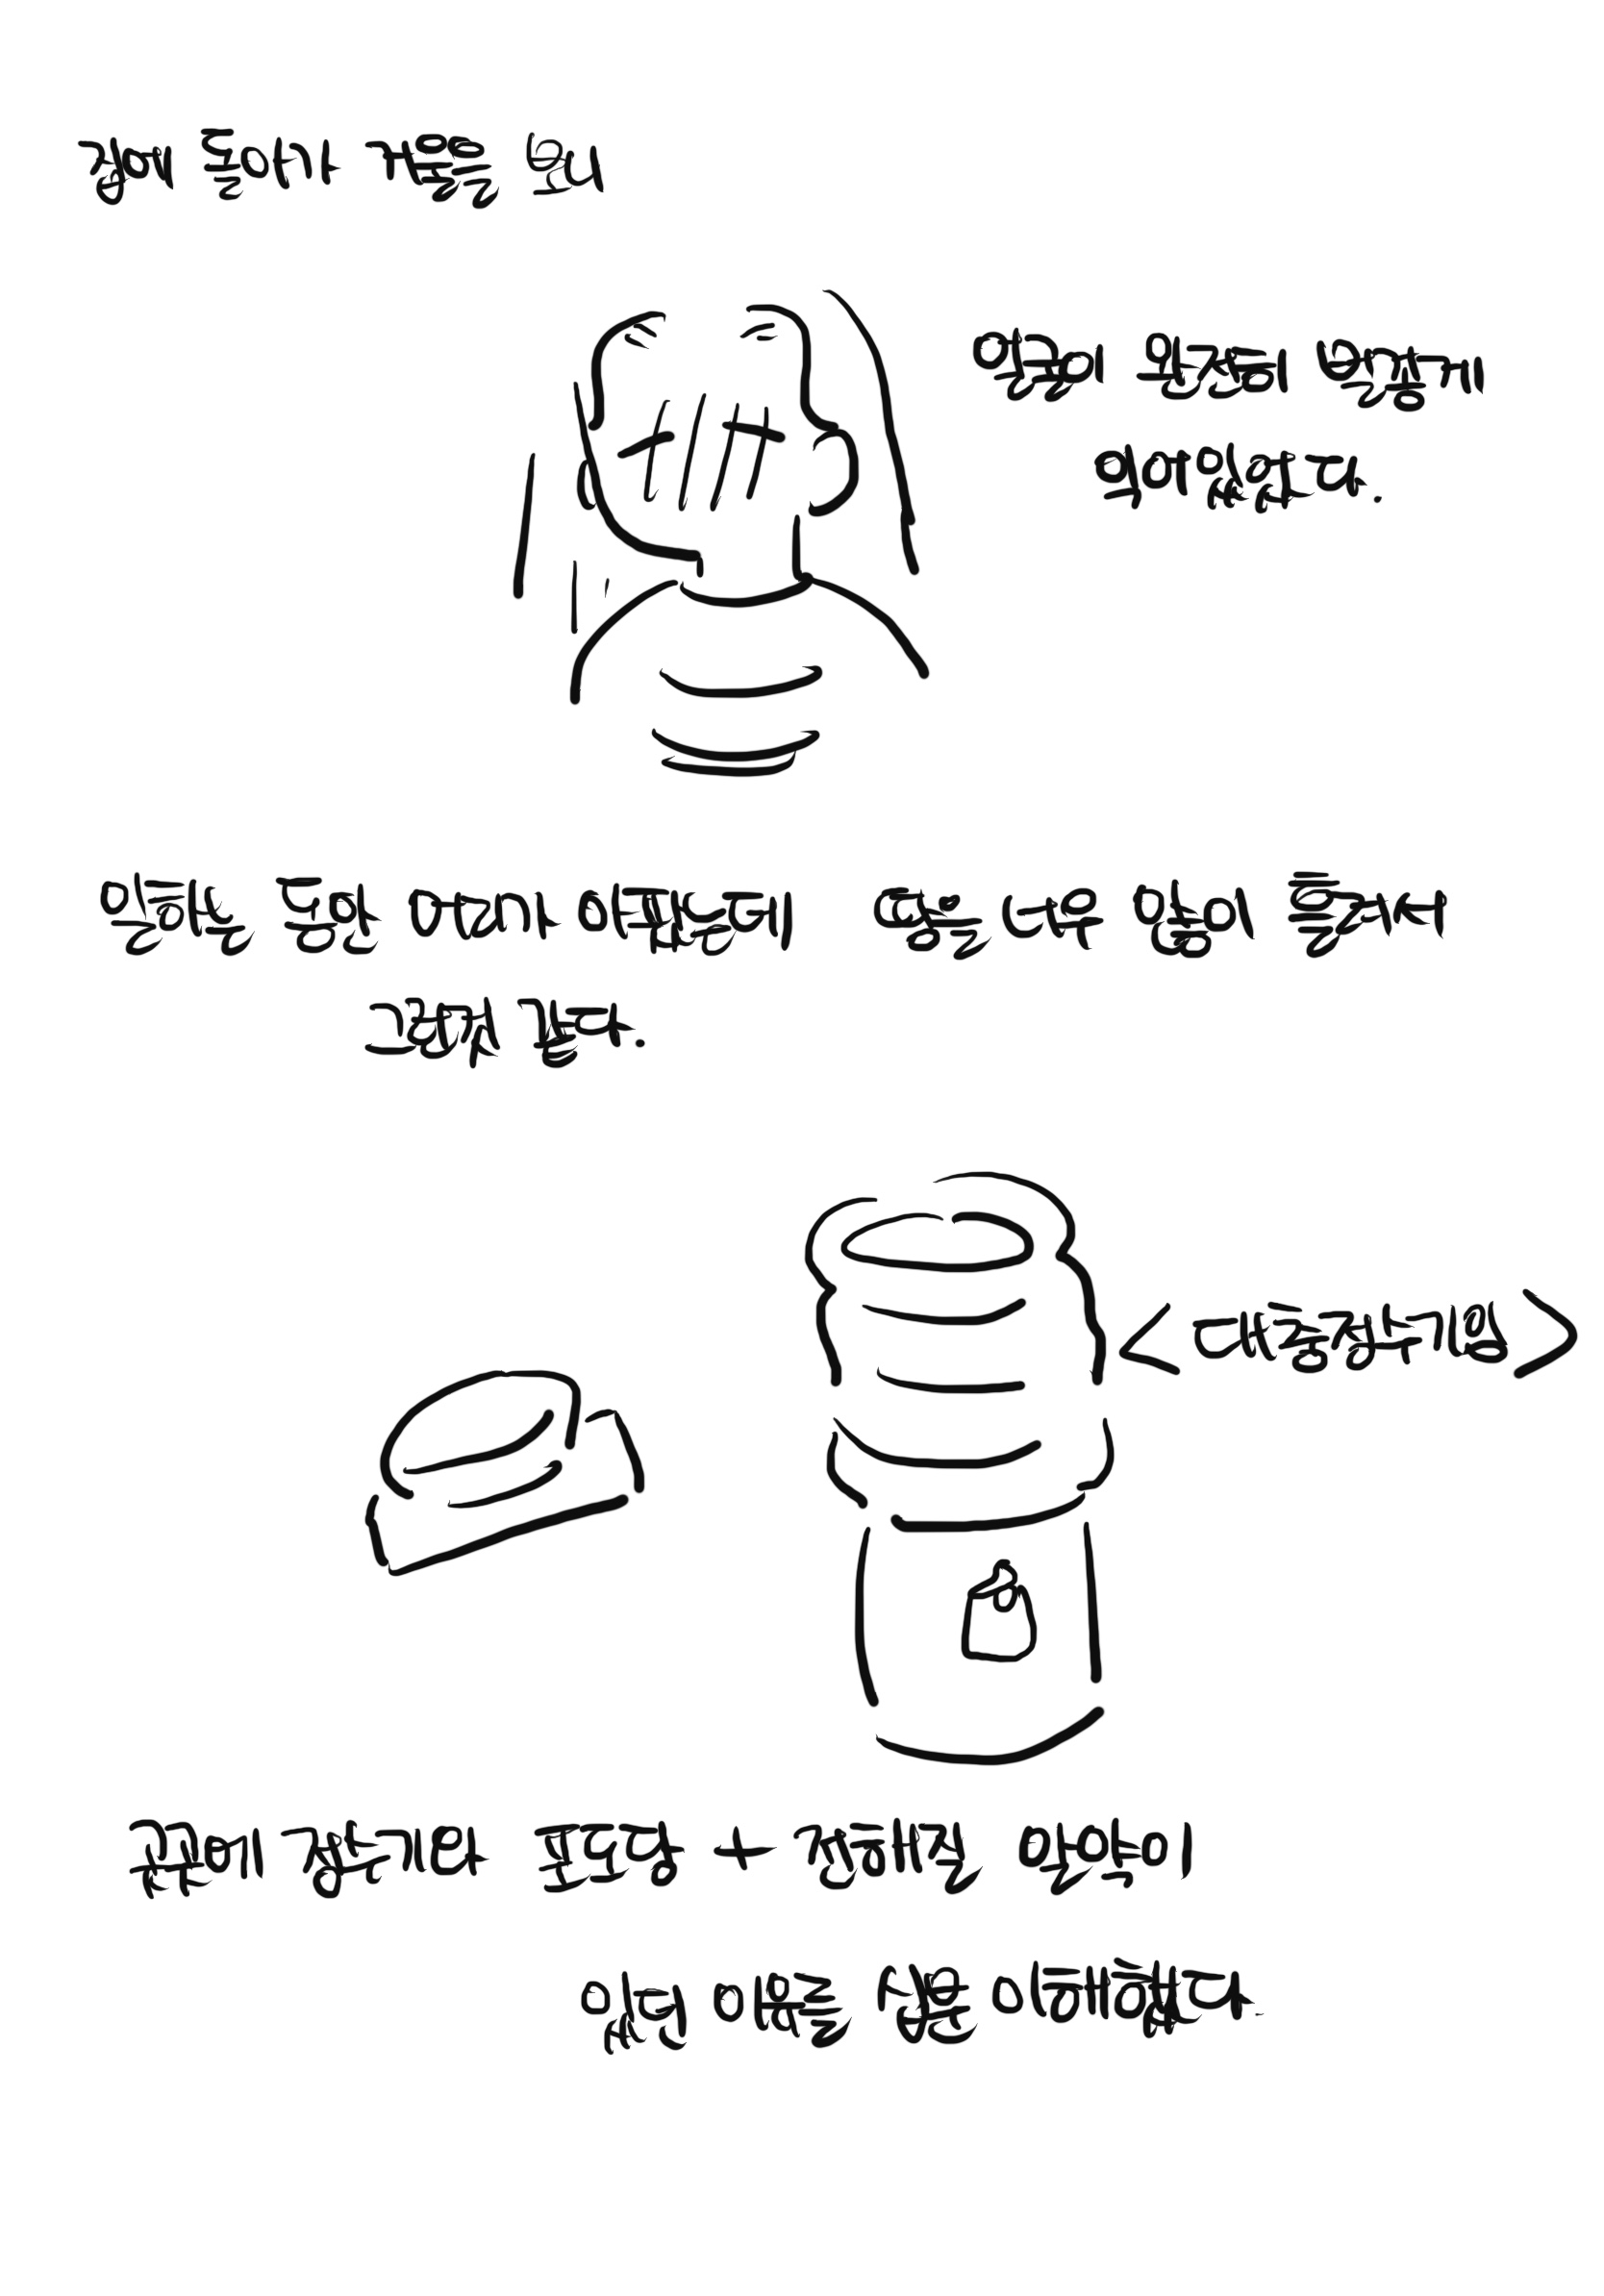 집에 돌아가 거울을 보니
얼굴이 완전히 빨갛게
익어있었다.
일하는 동안 머리가 아팠는데 땀을 너무 많이 흘려서
그런것 같다.
<대충정수기임>
곁에 정수기와 포도당 + 전해질 알약이
있던 이유를 십분 이해했다.